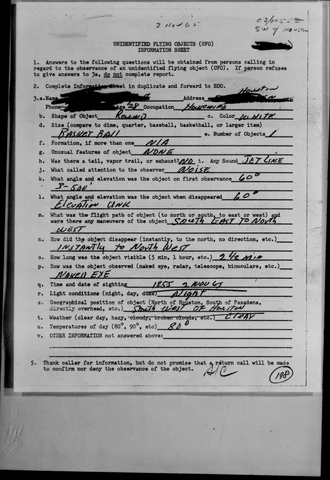 2 NOV 65
UNIDENTIFIED FLYING OBJECTS (UFO)
INFORMATION SHEET
1. Answers to the following questions will be obtained from persons calling in
regard to the observance of an unidentified flying object (UFO). If person refuses
to give answers to 3a, do not complete report.
2. Complete Information Sheet in duplicate and forward to EDO.
Houston
3. a. Name Address
Phone Age 28 Occupation Housewife
b. Shape of Object ROUND c. Color WHITE
d. Size (compare to dime, quarter, baseball, basketball, or larger item)
BASKET BALL e. Number of Objects 1
f. Formation, if more than one N/A
g. Unusual features of object NONE
h. Was there a tail, vapor trail, or exhaust NO i. Any Sound JET LIKE
j. What called attention to the observer NOISE
k. What angle and elevation was the object on first observance 60°
3-500'
l. What angle and elevation was the object when disappeared 60°
Elevation UNK
m. What was the flight path of object (to north or south, to east or west) and
were there any maneuvers of the object SOUTH EAST TO NORTH
WEST
n. How did the object disappear (instantly, to the north, no direction, etc.)
INSTANTLY TO NORTH WEST
o. How long was the object visible (5 min, 1 hour, etc.) 2½ MIN
p. How was the object observed (naked eye, radar, telescope, binoculars, etc.)
NAKED EYE
q. Time and date of sighting 1855 2 NOV 65
r. Light conditions (night, day, dusk) NIGHT
s. Geographical position of object (North of Houston, South of Pasadena,
directly overhead, etc.) South West OF HOUSTON
t. Weather (clear day, hazy, cloudy, broken clouds, etc.) CLEAR
u. Temperatures of day (80°, 90°, etc) 80°
v. OTHER INFORMATION not answered above:
5. Thank caller for information, but do not promise that a return call will be made
to confirm nor deny the observance of the object.